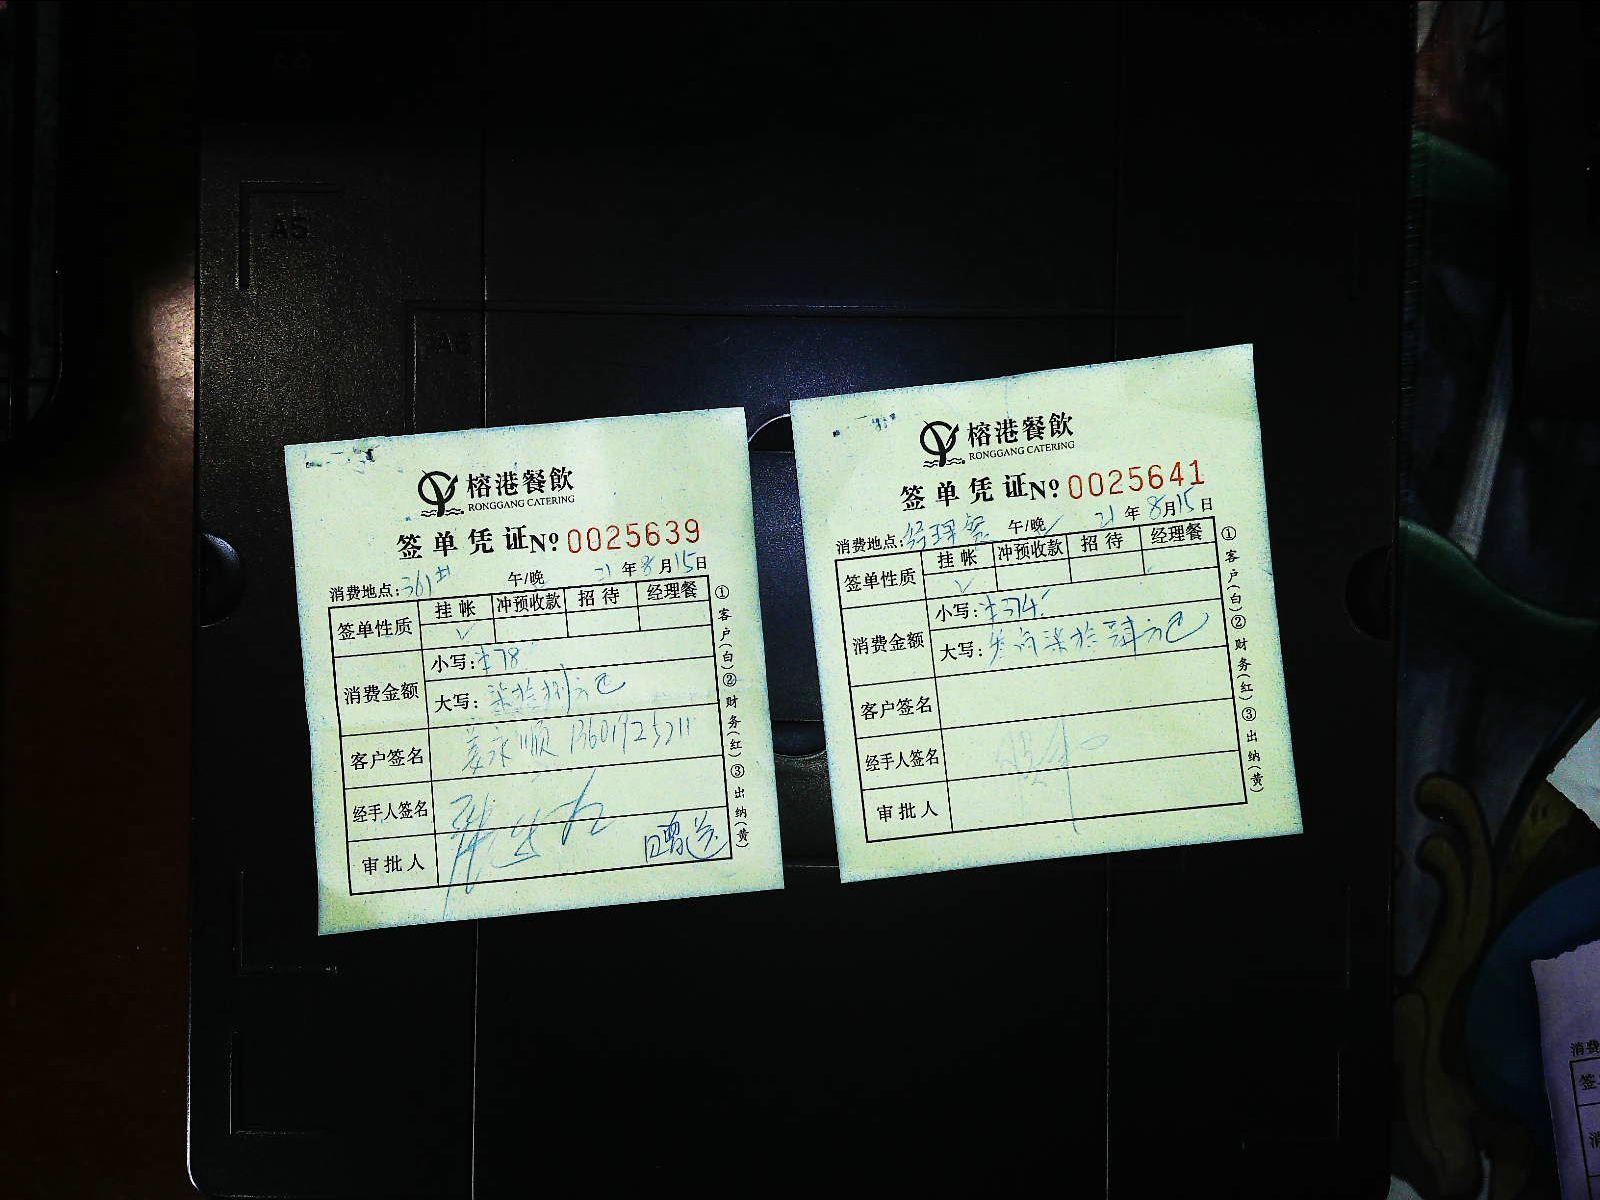 榕港餐飲
RONGGANG CATERING
签单凭证 Nº 0025639
消费地点: 361 午/晚 21年8月15日
签单性质 挂帐 冲预收款 招待 经理餐
✓
消费金额 小写: ¥78
大写: 柒拾捌元
客户签名 姜永顺 13601925211
经手人签名
审批人
①客户(白)②财务(红)③出纳(黄)
榕港餐飲
RONGGANG CATERING
签单凭证 Nº 0025641
消费地点: 经理餐 午/晚 21年8月15日
签单性质 挂帐 冲预收款 招待 经理餐
✓
消费金额 小写: ¥374
大写: 叁佰柒拾肆元
客户签名
经手人签名
审批人
①客户(白)②财务(红)③出纳(黄)
A5
消费
签